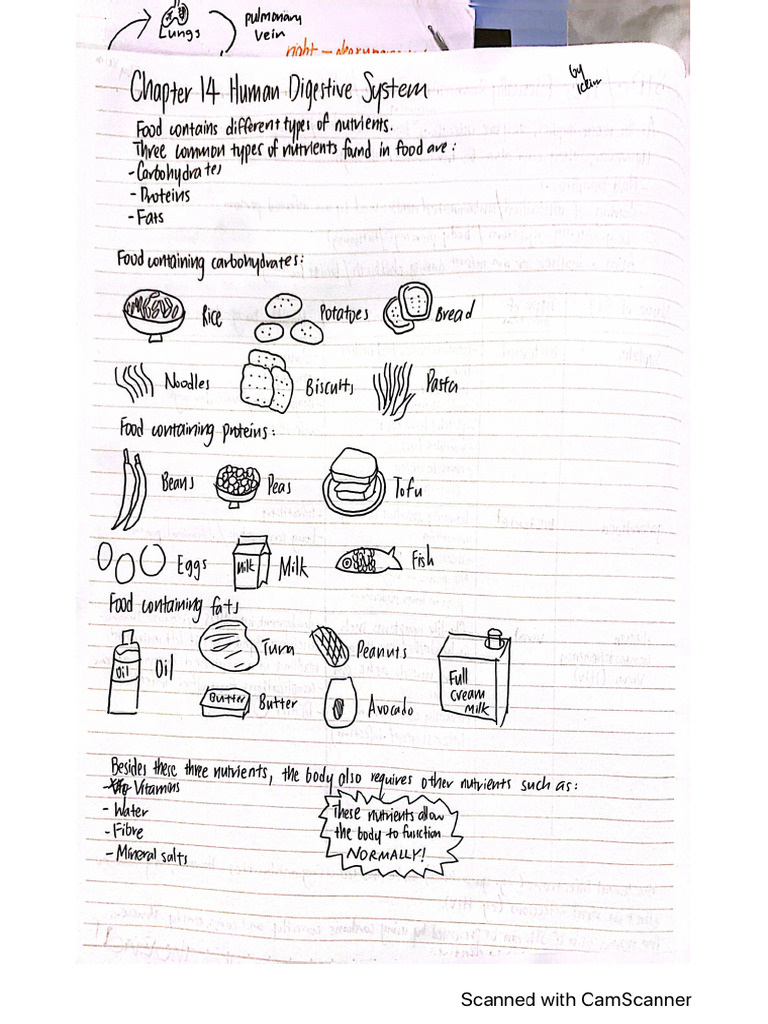 Lungs
pulmonary
vein
Chapter 14 Human Digestive System
by
Food contains different types of nutrients.
Three common types of nutrients found in food are:
- Carbohydrates
- Proteins
- Fats
Food containing carbohydrates:
Rice
Potatoes
Bread
Noodles
Biscuits
Pasta
Food containing proteins:
Beans
Peas
Tofu
Eggs
Milk
Milk
Fish
Food containing fats
Oil
Oil
Tuna
Peanuts
Butter
Butter
Avocado
Full
Cream
Milk
Besides these three nutrients, the body also requires other nutrients such as:
- Vitamins
- Water
- Fibre
- Mineral salts
These nutrients allow
the body to function
NORMALLY!
Scanned with CamScanner